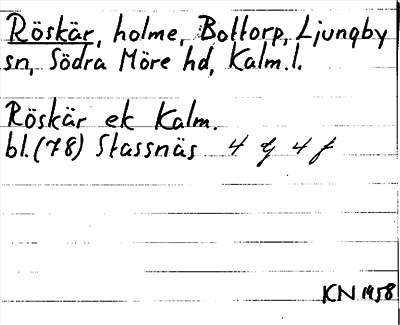 Röskär, holme, Bottorp, Ljungby
sn, Södra Möre hd, Kalm.l.
Röskär ek Kalm.
bl.(78) Stassnäs 4 g 4 f
KN 1958